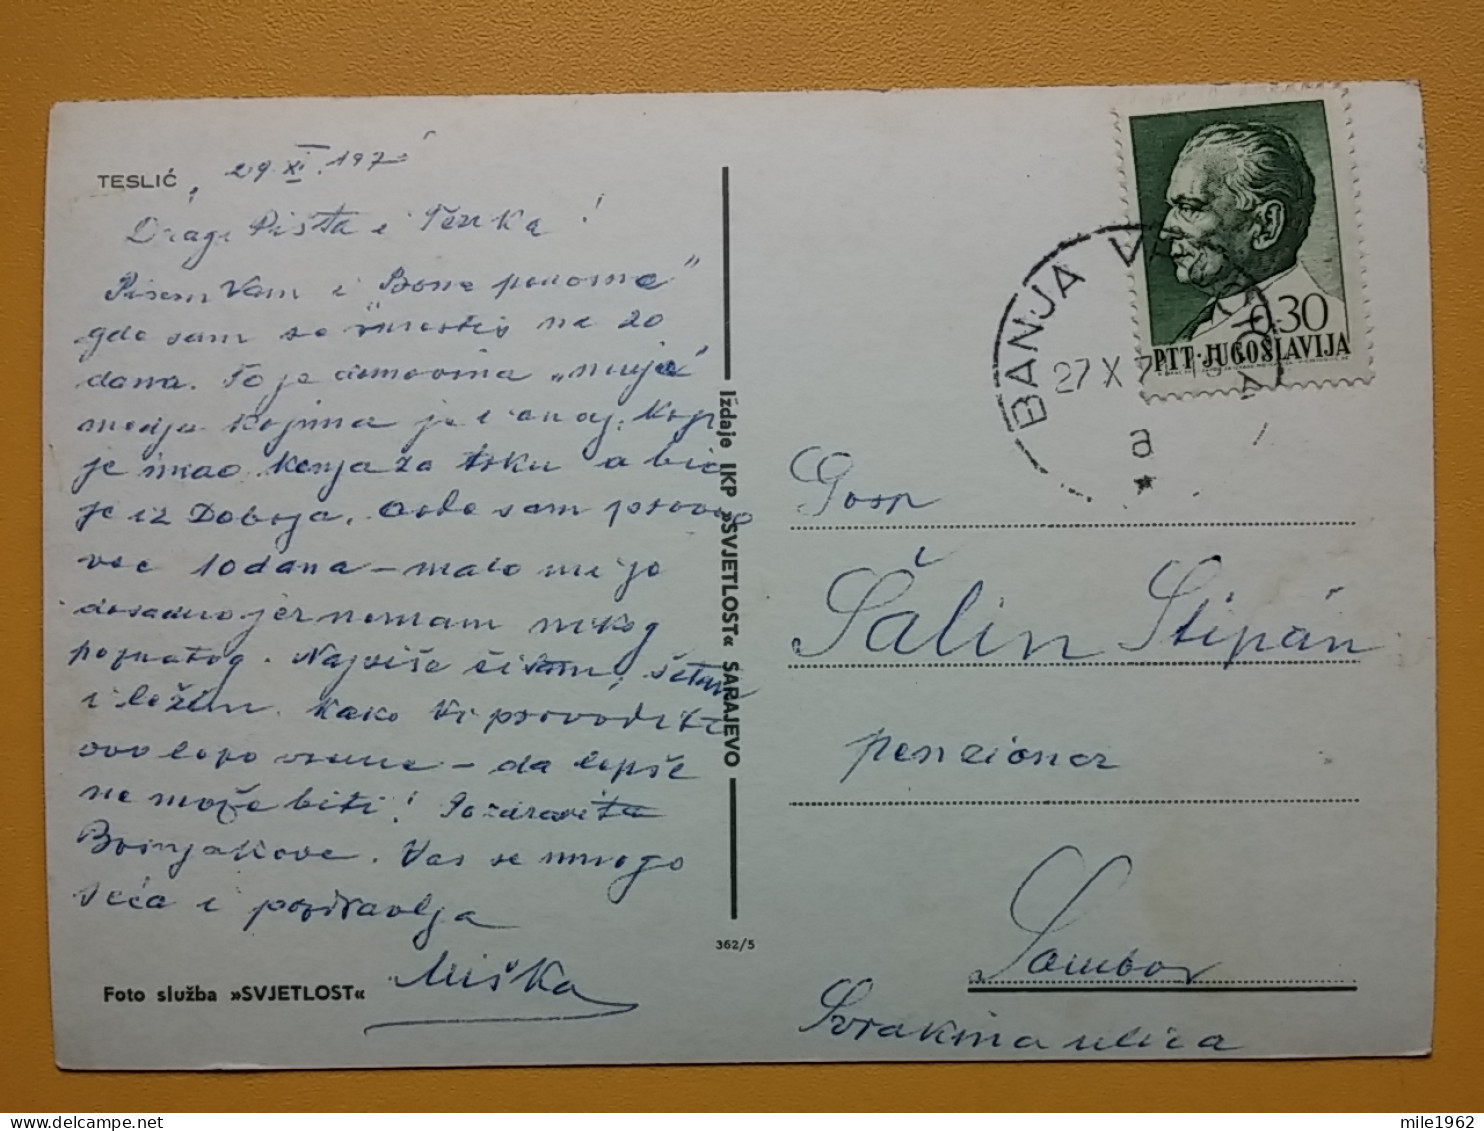 TESLIĆ, 29.XI.197
Dragi Pišta i Terika!
Pišem Vam i "Bosne ponosne"
gde sam se smestio na 20
dana. To je domovina „muje"
medju kojima je i onaj koji
je imao konja za trku a bio
je iz Doboja. Ovde sam proveo
vec 10 dana – malo mi je
dosadno jer nemam nikog
poznatog. Najviše čitam, šetam
i ležim. Kako Vi provodite
ovo lepo vreme – da lepše
ne može biti! Pozdravite
Bošnjakove. Vas se mnogo
seća i pozdravlja
Miška
Foto služba »SVJETLOST«
Izdaje IKP »SVJETLOST« SARAJEVO
362/5
0,30
PTT·JUGOSLAVIJA
BANJA
27 X 7
a
Gosp
Šálin Stipán
penzioner
Sombor
Svrakina ulica
mile1962